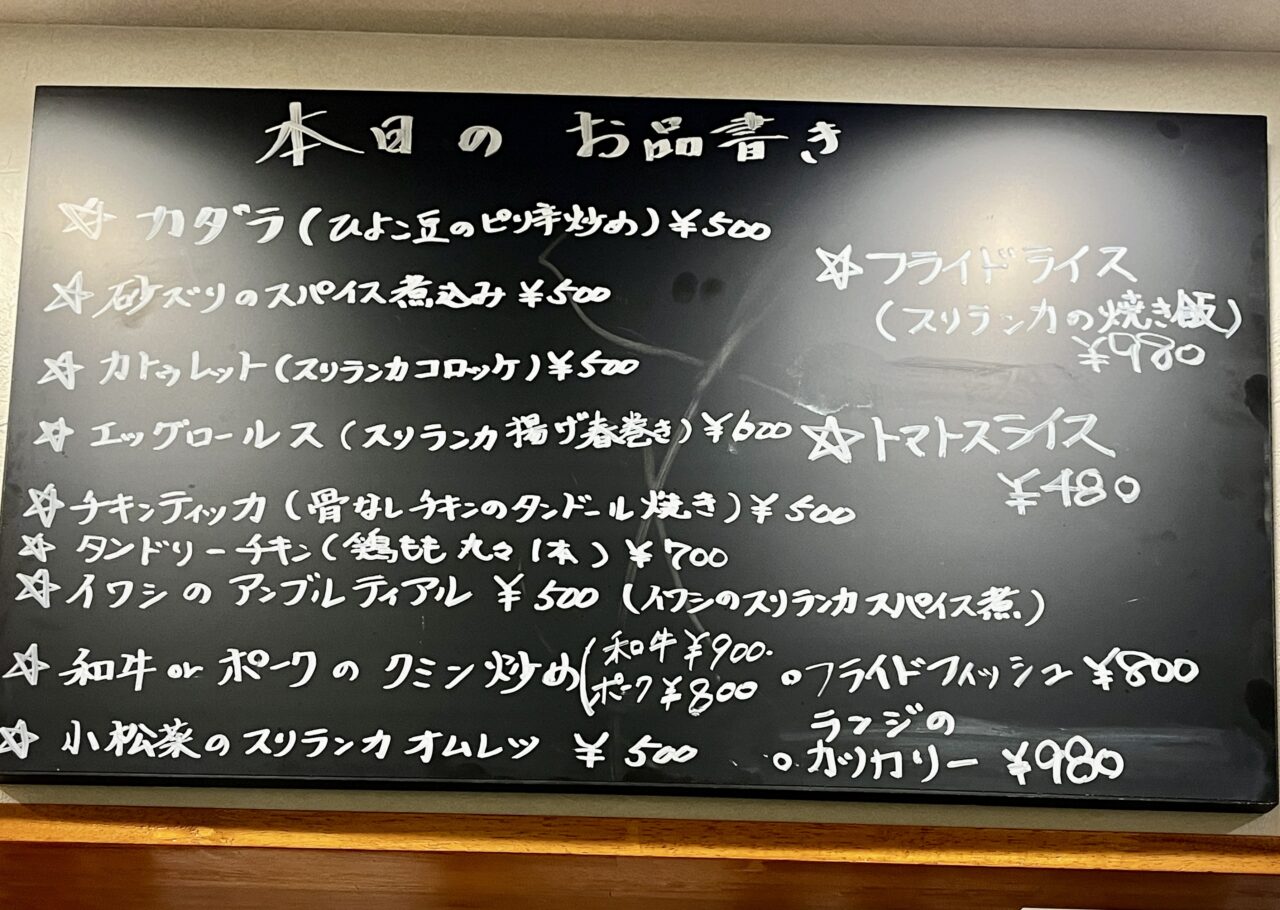 本日の お品書き
☆ カダラ(ひよこ豆のピリ辛炒め)¥500
☆ 砂ズリのスパイス煮込み ¥500
☆ カトゥレット(スリランカコロッケ)¥500
☆ エッグロールス(スリランカ揚げ春巻き)¥600
☆ チキンティッカ(骨なしチキンのタンドール焼き)¥500
☆ タンドリーチキン(鶏もも丸々1本)¥700
☆ イワシのアンブルティアル ¥500(イワシのスリランカスパイス煮)
☆ 和牛orポークのクミン炒め(和牛¥900.
ポーク¥800
☆ 小松菜のスリランカオムレツ ¥500
☆ フライドライス
(スリランカの焼き飯)
¥980
☆ トマトスライス
¥480
○ フライドフィッシュ ¥800
ランジの
○ カツカリー ¥980